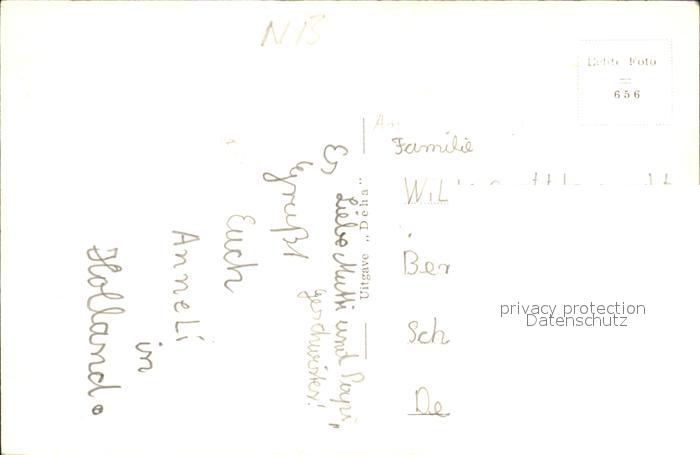 NB
Echte Foto
656
An
Familie
Wil
Ber
Sch
De
privacy protection
Datenschutz
Uitgave „Déha"
Liebe Mutti und Papi,
Geschwister!
Es
grüßt
Euch
Anneli
in
Holland.